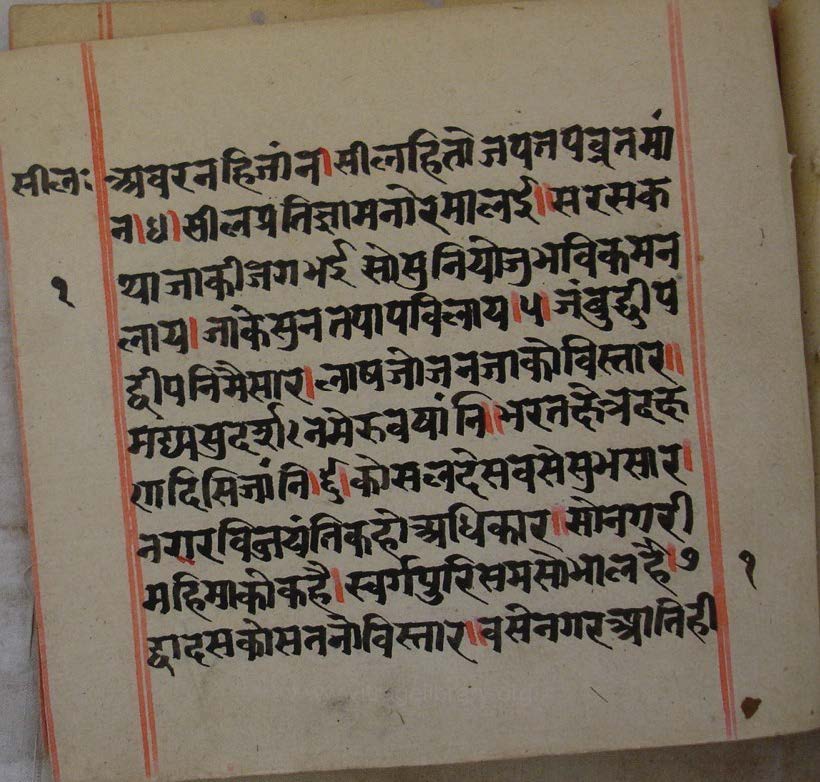 सील: अवरनहिजांन।सीलहितोजपतपव्रतमां
न।४।सीलप्रतिज्ञामनोरमालई॥सरसक
थाजाकीजगभई सोसुनियोजुभविकमन
लाय।जांकेसुनतपापविलाय।५।जंबुद्वीप
द्वीपनिमैसार।लाषजोजनजाकोविस्तार॥
१
मद्यसुदर्श।नमेरुवषांनि॥भरतक्षेत्रदक्ष
णदिसिजांनि।६।कोसलदेसवसेसुभसार।
नगरविजयंतिकहोअधिकार॥सोनगरी
महिमाकोकहै।स्वर्गपुरिसमसोभालहै।७
१
द्वादसकोसतनोविस्तार॥वसेनगरअतिही